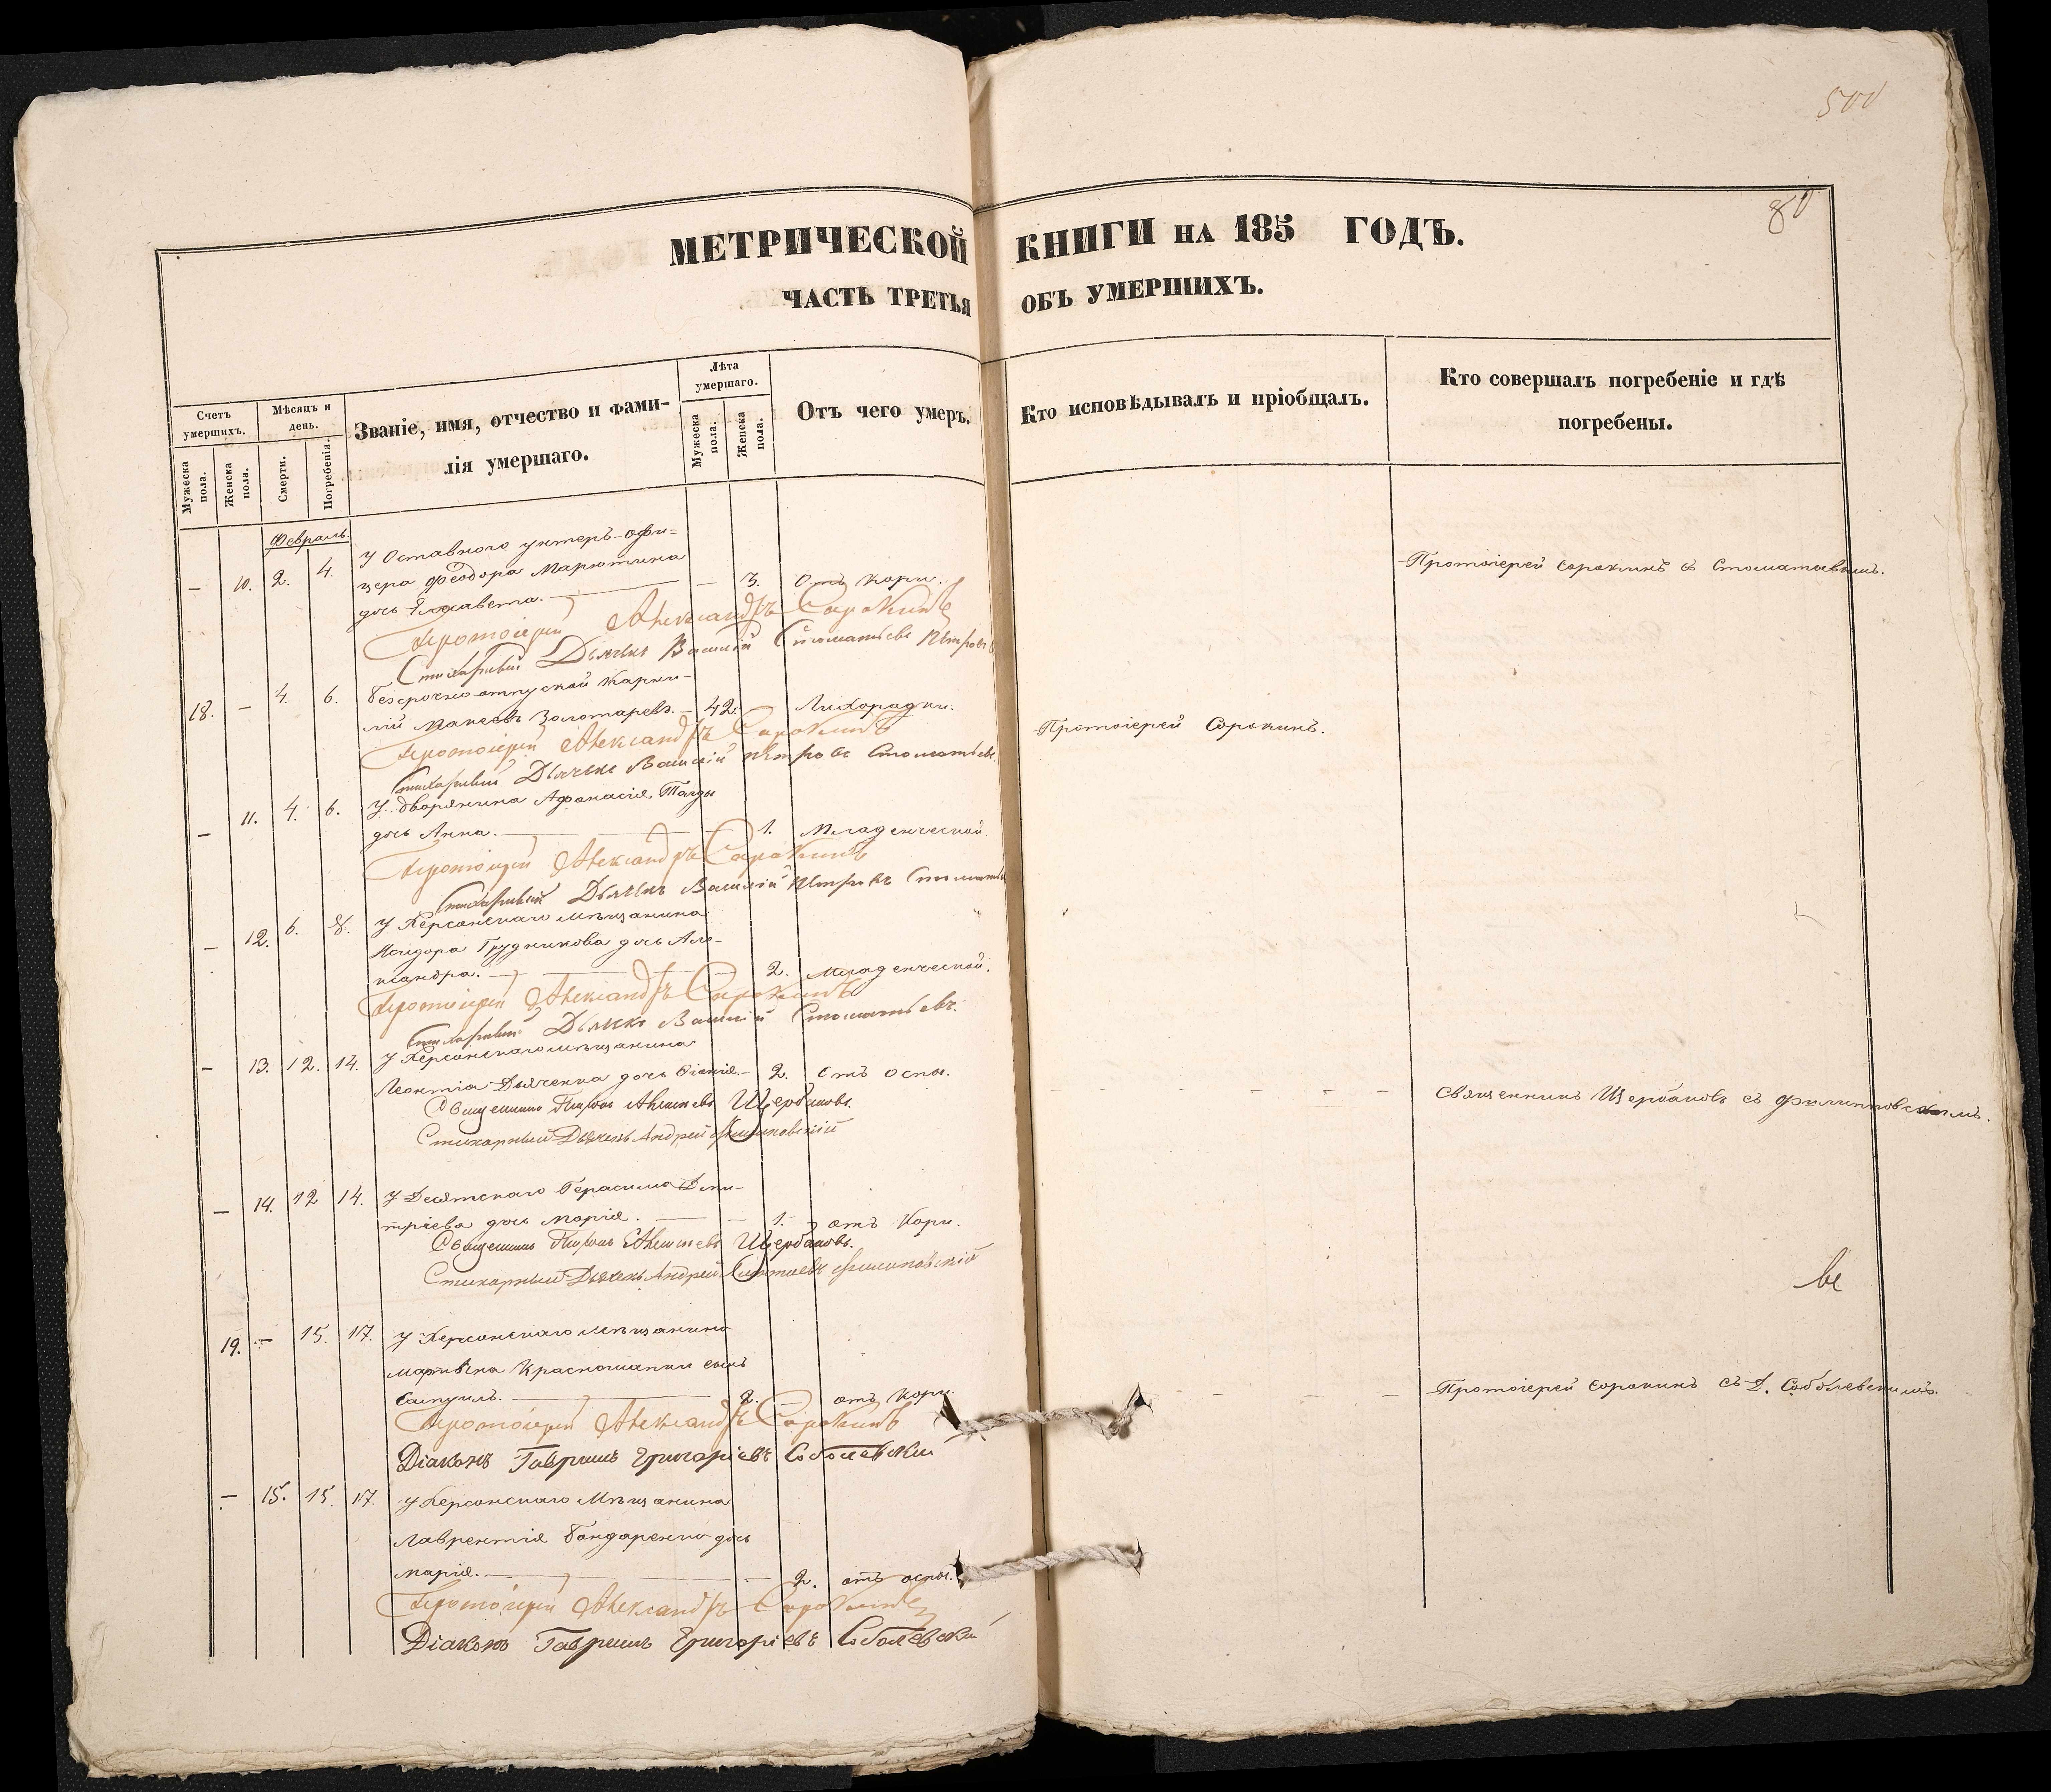 500
80
МЕТРИЧЕСКОЙ КНИГИ НА 185 ГОДЪ.
ЧАСТЬ ТРЕТЬЯ ОБЪ УМЕРШИХЪ.
Счетъ умершихъ.
Мужеска пола.
Женска пола.
Мѣсяцъ и день.
Смерти.
Погребенія.
Званіе, имя, отчество и фами-
лія умершаго.
Лѣта умершаго.
Мужеска пола.
Женска пола.
Отъ чего умеръ.
Кто исповѣдывалъ и пріобщалъ.
Кто совершалъ погребеніе и гдѣ
погребены.
Февраль.
У Оставного унтеръ-офи=
— 10. 2. 4. цера Феодора Марютина
дочь Елисавета. — 3. Отъ кори. Протоіерей Сорокинъ съ Стоматьевымъ.
Протоіерей Александръ Сорокинъ
Стихарный Дьячекъ Василій Стоматьевъ Петровъ
18. — 4. 6. Безсрочно отпускной Корни-
лій Макеевъ Золотаревъ. — 42. — Лихорадки. Протоіерей Сорокинъ.
Протоіерей Александръ Сорокинъ
Стихарный Дьячекъ Василій Петровъ Стоматьевъ
— 11. 4. 6. У дворянина Афанасія
дочь Анна. — 1. Младенческой.
Протоіерей Александръ Сорокинъ
Стихарный Дьячекъ Василій Петровъ Стоматьев
— 12. 6. 8. У Херсонскаго мѣщанина
Исидора Грудникова дочь Але-
ксандра. — 2. Младенческой.
Протоіерей Александръ Сорокинъ
Стихарный Дьячекъ Василій Стоматьевъ.
— 13. 12. 14. У Херсонскаго мѣщанина
Леонтія Дьяченка дочь — 2. Отъ оспы. Священникъ Щербаковъ съ Филипповскимъ.
Священникъ Щербаковъ.
Стихарный Дьячекъ Андрей Филиповскій
— 14. 12 14. У Десятскаго Герасима Дми-
тріева дочь Марія. — 1. отъ Кори.
Священникъ Щербаковъ.
Стихарный Дьячекъ Андрей Филиповскій
19. — 15. 17. У Херсонскаго мѣщанина
Матвѣя Красношапки сынъ
Самуилъ. — 2. отъ кори. Протоіерей Сорокинъ съ Д. Соболевскимъ.
Протоіерей Александръ Сорокинъ
Діаконъ Гавриилъ Григоріевъ Соболевскій
— 15. 15. 17. У Херсонскаго Мѣщанина
Лаврентія Бондаренка дочь
Марія. — 2. отъ оспы.
Протоіерей Александръ Сорокинъ
Діаконъ Гавриилъ Григоріевъ Соболевскій